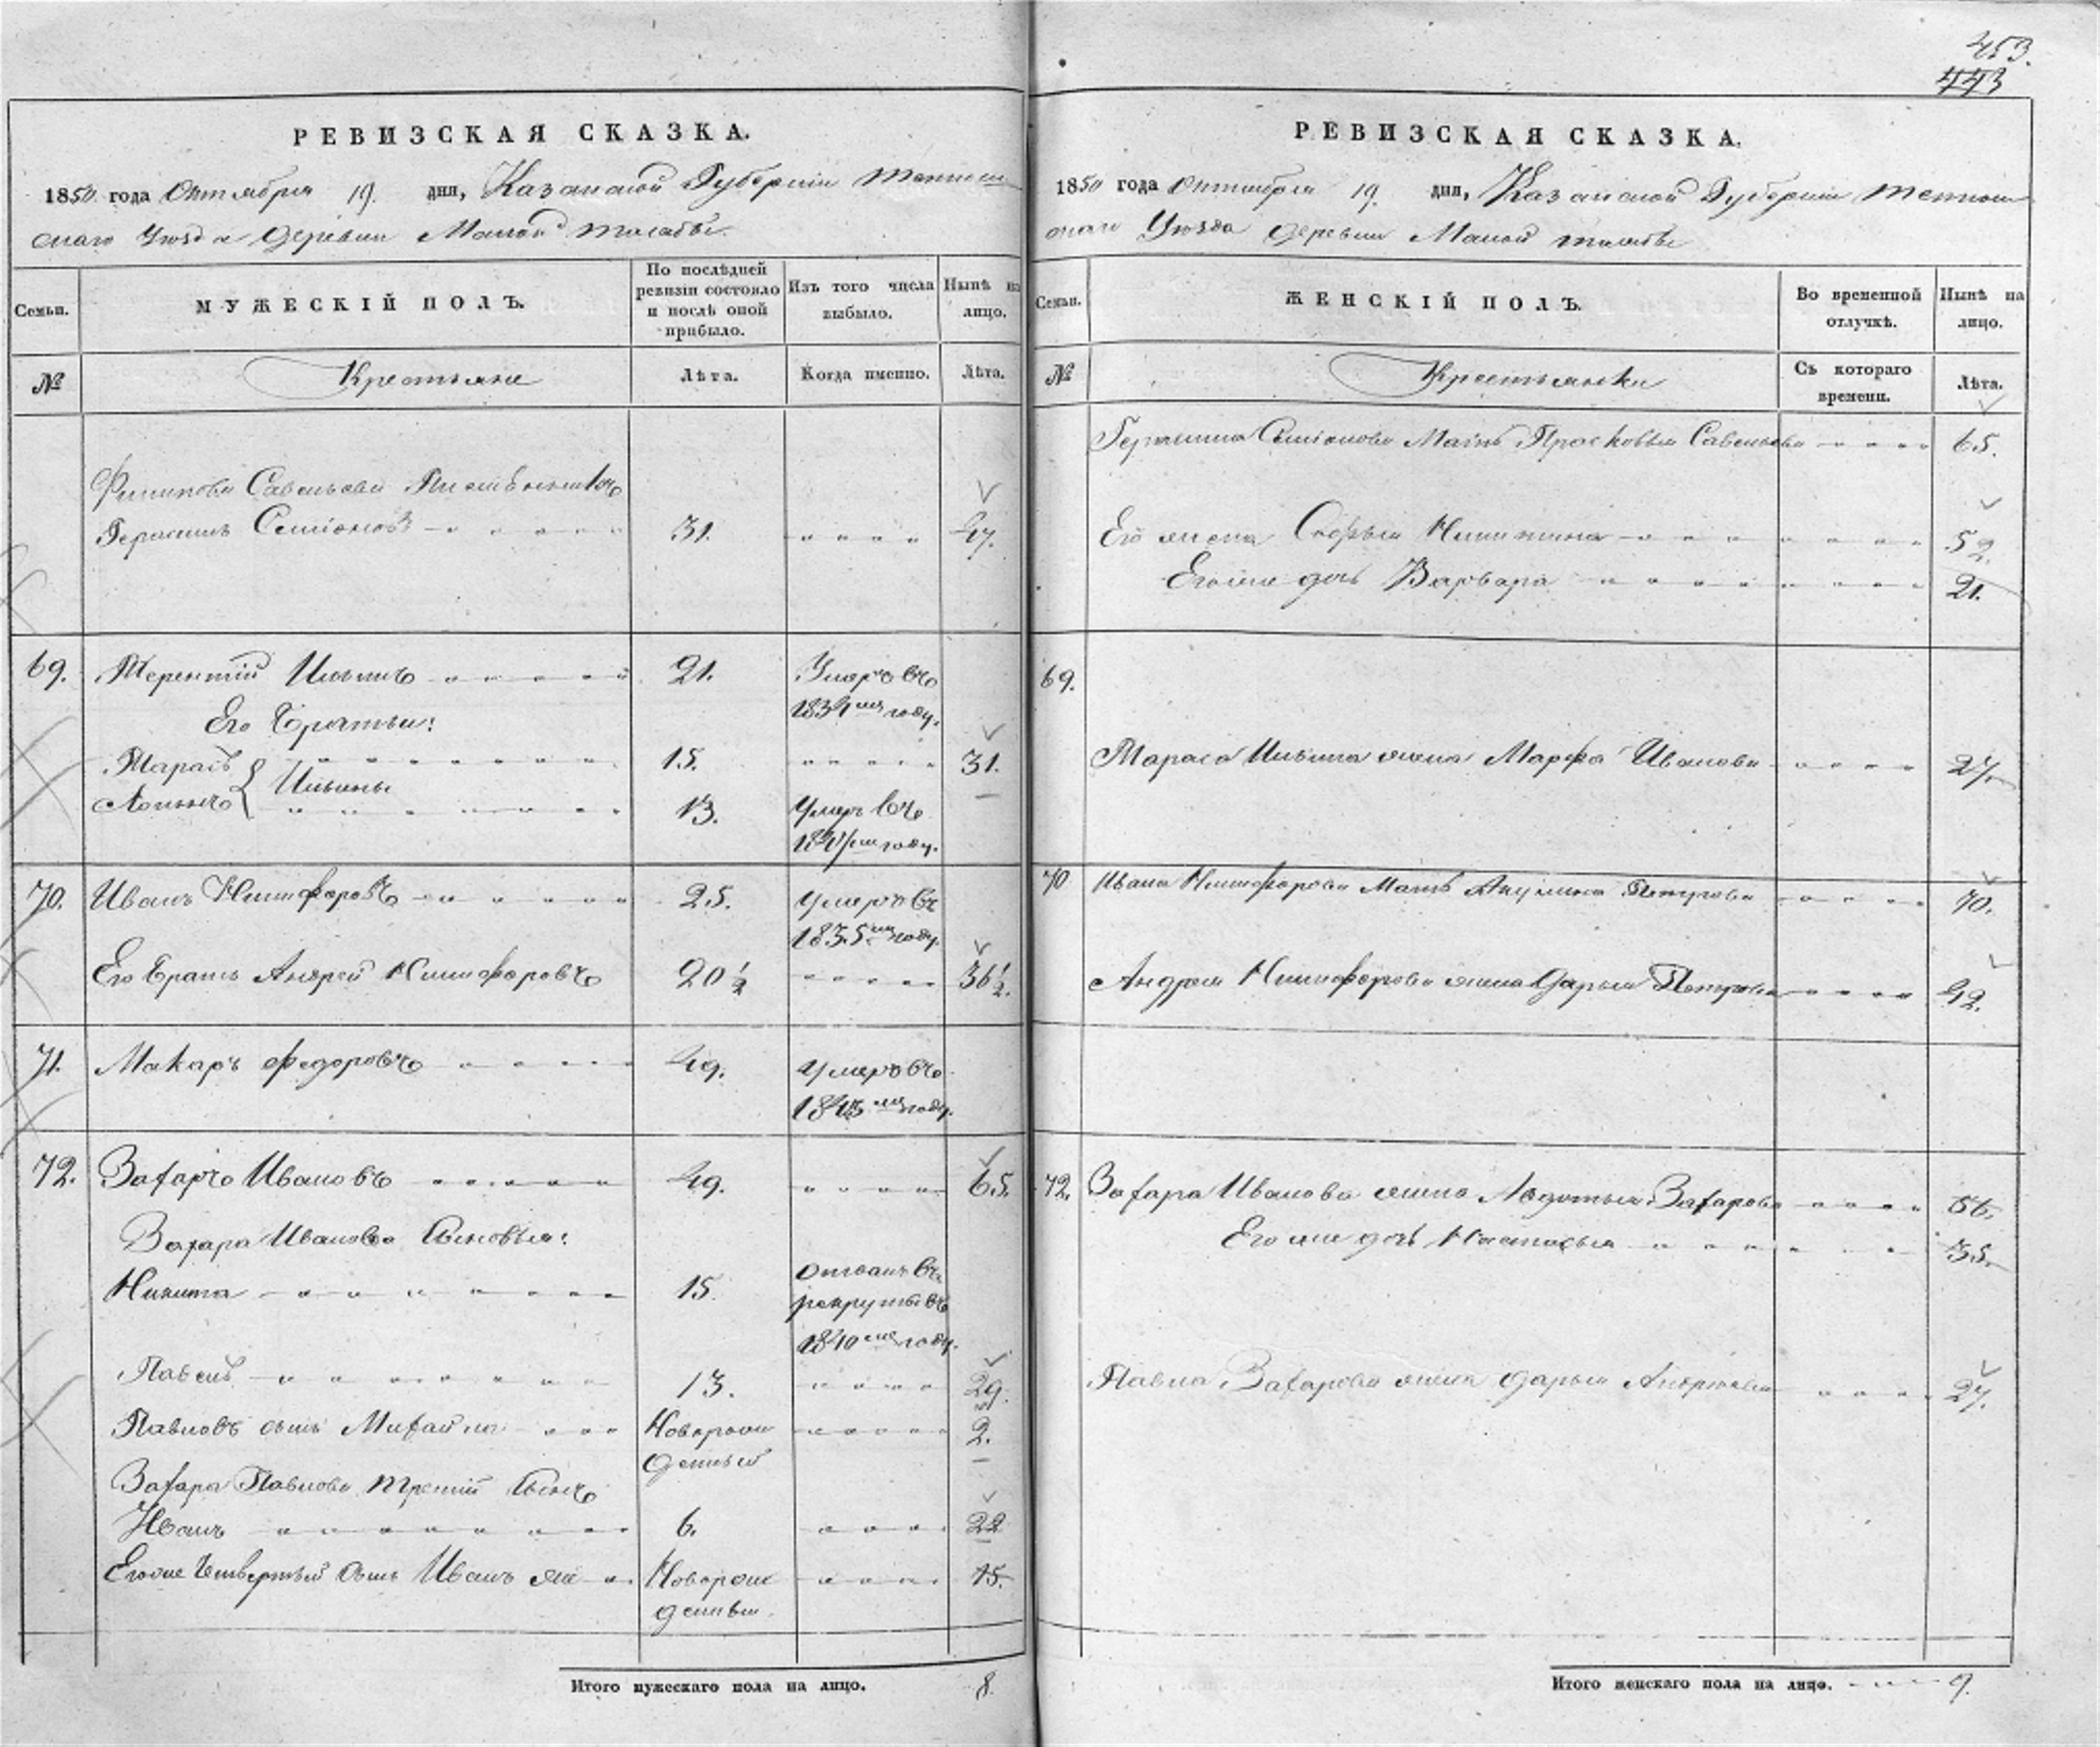 453.
443
РЕВИЗСКАЯ СКАЗКА.
1850 года Октября 19. дня, Казанской Губернии
скаго Уѣзда Деревни Малой
Семьи.
МУЖЕСКІЙ ПОЛЪ.
По послѣдней ревизіи состояло и послѣ оной прибыло.
Изъ того числа выбыло.
Нынѣ на лицо.
№
Крестьяне
Лѣта.
Когда именно.
Лѣта.
Филипова Савельева Племянникъ
Герасимъ Семіоновъ 31. 47.
69. Терентій Ильинъ 21. Умеръ въ
Его братья: 1834мъ году.
Тарасъ 15. 31.
Ильины
Логинъ 13. Умеръ въ
году.
70. Иванъ Никифоровъ 25. Умеръ въ
1835мъ году.
Его братъ Андрей Никифоровъ 20½ 36½.
71. Макаръ Федоровъ 49. Умеръ въ
году.
72. Захаръ Ивановъ 49. 65.
Захара Иванова Сыновья:
Никита 15. Отданъ въ
рекруты въ
1840мъ году.
Павелъ 13. 29.
Павловъ сынъ Михайла Новорож 2.
денный
Захара Павлова третій Сынъ
Иванъ 6. 22
Егоже Четвертый Сынъ Иванъ же Новорож 15.
денный
Итого мужескаго пола на лицо. 8.
РЕВИЗСКАЯ СКАЗКА.
1850 года Октября 19. дня, Казанской Губерніи
скаго Уѣзда Деревни Малой
Семьи.
ЖЕНСКІЙ ПОЛЪ.
Во временной отлучкѣ.
Нынѣ на лицо.
№
Крестьянки
Съ котораго времени.
Лѣта.
Герасима Семіонова Мать Прасковья Савельева 65.
Его жена Софья Никитина 52.
Егоже дочь Варвара 21.
69.
Тараса Ильина жена Марфа Иванова 27.
70 Ивана Никифорова Мать Акулина Петрова 70.
Андрея Никифорова жена Дарья Петрова 42.
72. Захара Иванова жена Авдотья Захарова 56.
Егоже дочь Настасья 35.
Павла Захарова жена Дарья Андреева 27.
Итого женскаго пола на лицо. 9.